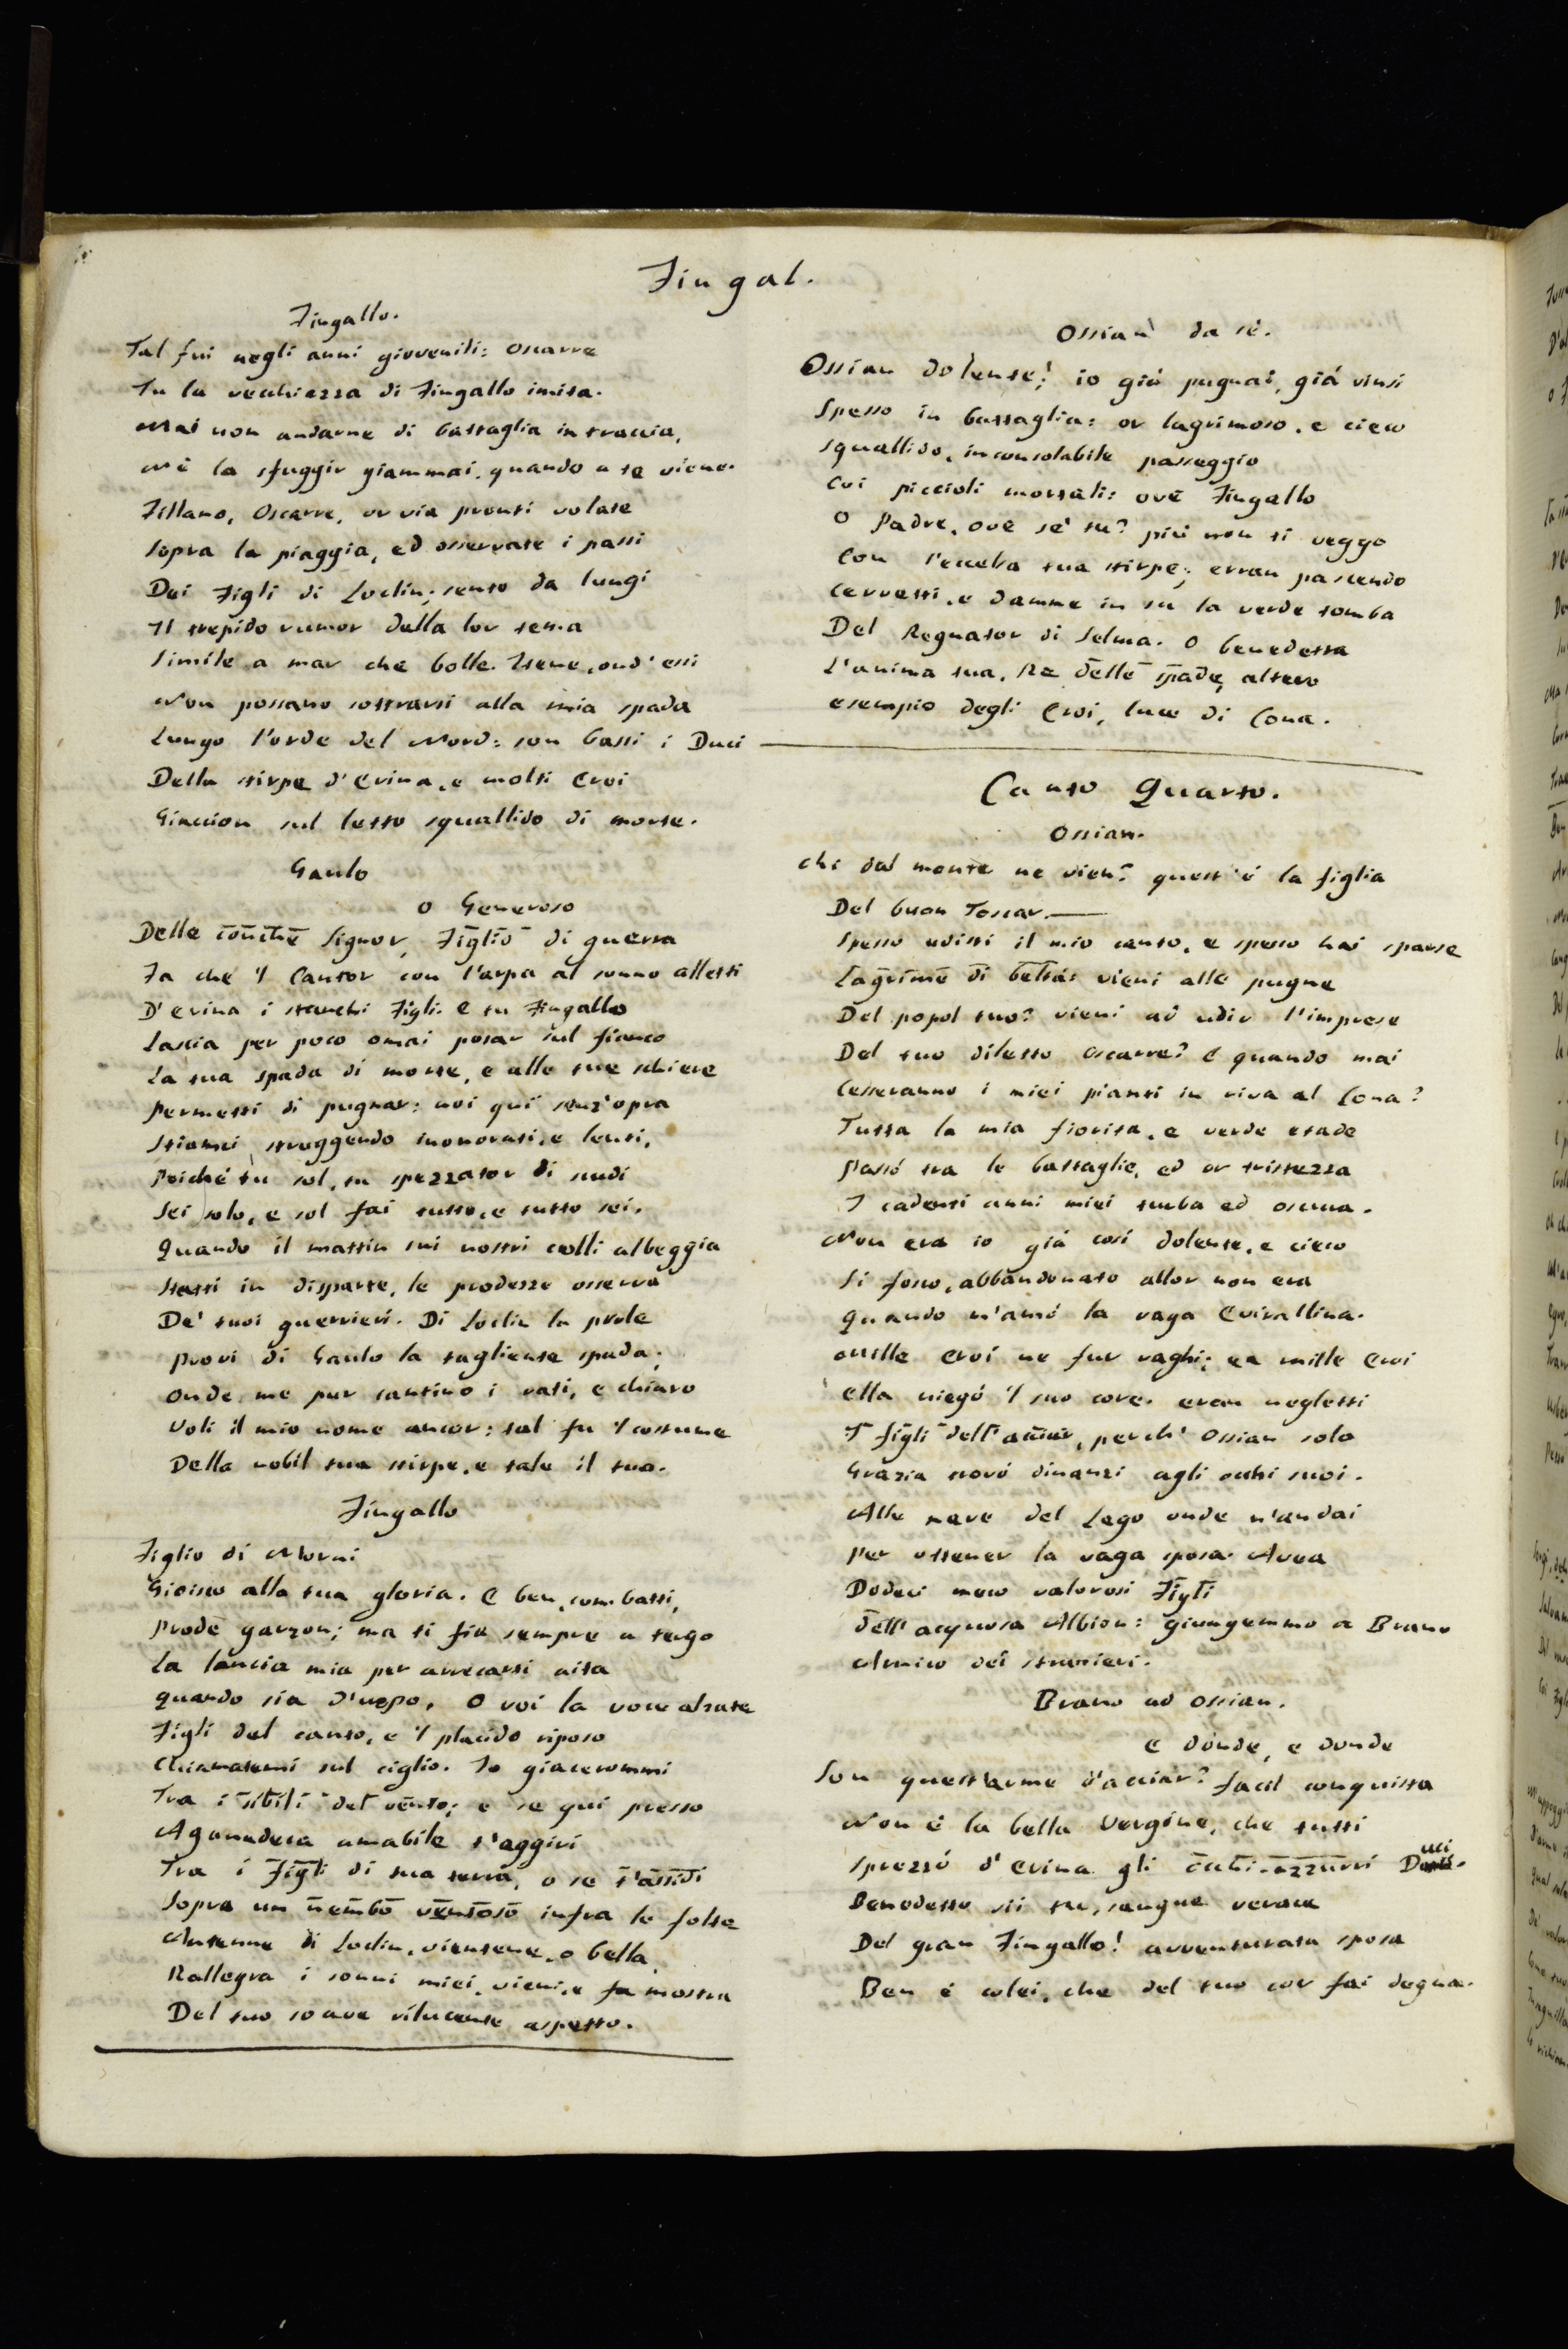 Fingal.
Fingallo.
Tal fui negli anni giovenili: Oscarre
Tu la vecchiezza di Fingallo imita.
Mai non andarne di battaglia in traccia,
Nè la sfuggir giammai, quando a te viene.
Fillano, Oscarre, or via pronti volate
Sopra la piaggia, ed osservate i passi
Dei Figli di Loclin; sento da lungi
Il trepido rumor della lor tema
Simile a mar che bolle. Itene, ond'essi
Non possano sottrarsi alla mia spada
Lungo l'onde del Nord: son bassi i Duci
Della stirpe d'Erina, e molti Eroi
Giaccion sul letto squallido di morte.
Gaulo
O Generoso
Delle conche Signor, Figlio di guerra
Fa che 'l Cantor con l'arpa al sonno alletti
D'Erina i stanchi Figli. E tu Fingallo
Lascia per poco omai posar sul fianco
La tua spada di morte, e alle tue schiere
Permetti di pugnar: noi qui senz'opra
Stiamci struggendo inonorati, e lenti,
Poiché tu sol, tu spezzator di scudi
Sei solo, e sol fai tutto, e tutto sei.
Quando il mattin sui nostri colli albeggia
Statti in disparte, le prodezze osserva
De' tuoi guerrieri. Di Loclin la prole
Provi di Gaulo la tagliente spada;
Onde me pur cantino i vati, e chiaro
Voli il mio nome ancor: tal fu 'l costume
Della nobil tua stirpe, e tale il tuo.
Fingallo
Figlio di Morni
Gioisco alla tua gloria. E ben, combatti,
Prode garzon; ma ti fia sempre a tergo
La lancia mia per arrecarti aita
Quando sia d'uopo. O voi la voce alzate
Figli del canto, e 'l placido riposo
Chiamatemi sul ciglio. Io giacerommi
Tra i sibili del vento; e se qui presso
Aganadeca amabile t'aggiri
Tra i Figli di tua terra, o se t'assidi
Sopra un nembo ventoso infra le folte
Antenne di Loclin, vientene, o bella,
Rallegra i sonni miei, vieni, e fa mostra
Del tuo soave rilucente aspetto.
Ossian da sè.
Ossian dolente! io giá pugnai, giá vinsi
Spesso in battaglia: or lagrimoso, e cieco
Squallido, inconsolabile passeggio
Coi piccioli mortali: ove Fingallo
O Padre, ove se' tu? piú non ti veggo
Con l'eccelsa tua stirpe; erran pascendo
Cervetti, e damme in su la verde tomba
Del Regnator di Selma. O benedetta
L'anima tua, Re delle spade, altero
esempio degli Eroi, luce di Cona.
Canto Quarto.
Ossian.
Chi dal monte ne vien? quest'è la figlia
Del buon Toscar.
Spesso udisti il mio canto, e spesso hai sparse
Lagrime di beltá: vieni alle pugne
Del popol tuo? vieni ad udir l'imprese
Del tuo diletto Oscarre? E quando mai
Cesseranno i miei pianti in riva al Cona?
Tutta la mia fiorita, e verde etade
Passó tra le battaglie, ed or tristezza
I cadenti anni miei turba ed oscura.
Non era io giá così dolente, e cieco
Si fosco, abbandonato allor non era
Quando m'amó la vaga Evirallina.
Mille Eroi ne fur vaghi; ea mille Eroi
ella niegó 'l suo core. eran negletti
I figli dell'acciar, perch' Ossian solo
Grazia trovó dinanzi agli occhi suoi.
Alle nere del Lego onde n'andai
Per ottener la vaga sposa. Avea
Dodeci meco valorosi Figli
dell'acquosa Albion: giungemmo a Brano
Amico dei stranieri.
Brano ad Ossian.
E donde, e donde
Son quest'arme d'acciar? facil conquista
Non è la bella Vergine, che tutti
Sprezzó d'Erina gli occhi-azzurri Duci.
Benedetto sii tu, sangue verace
Del gran Fingallo! avventurata sposa
Ben è colei, che del tuo cor fai degna.